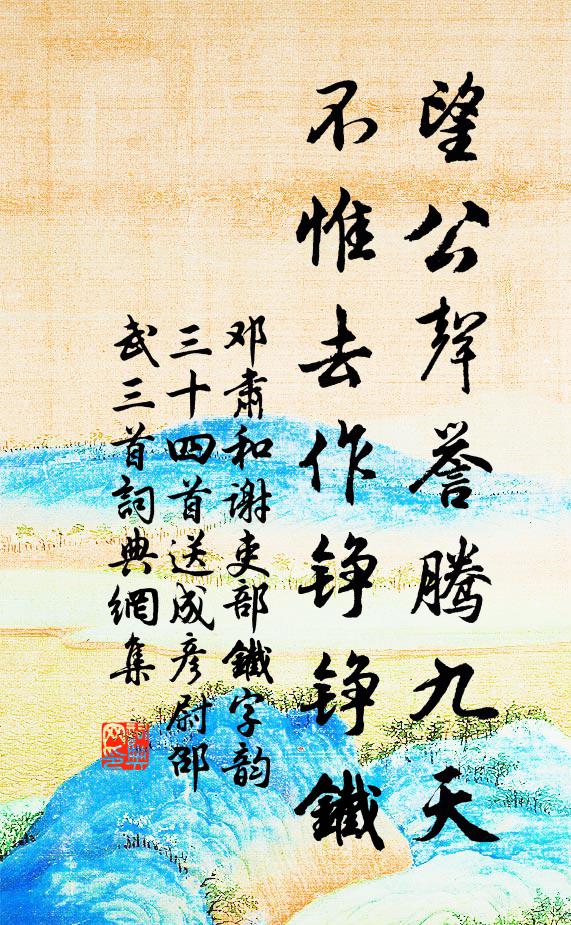 望公聲誉腾九天
不惟去作铮铮鐵
邓肃和谢吏部鐵字韵
三十四首送成彦尉邵
武三首詞典網集